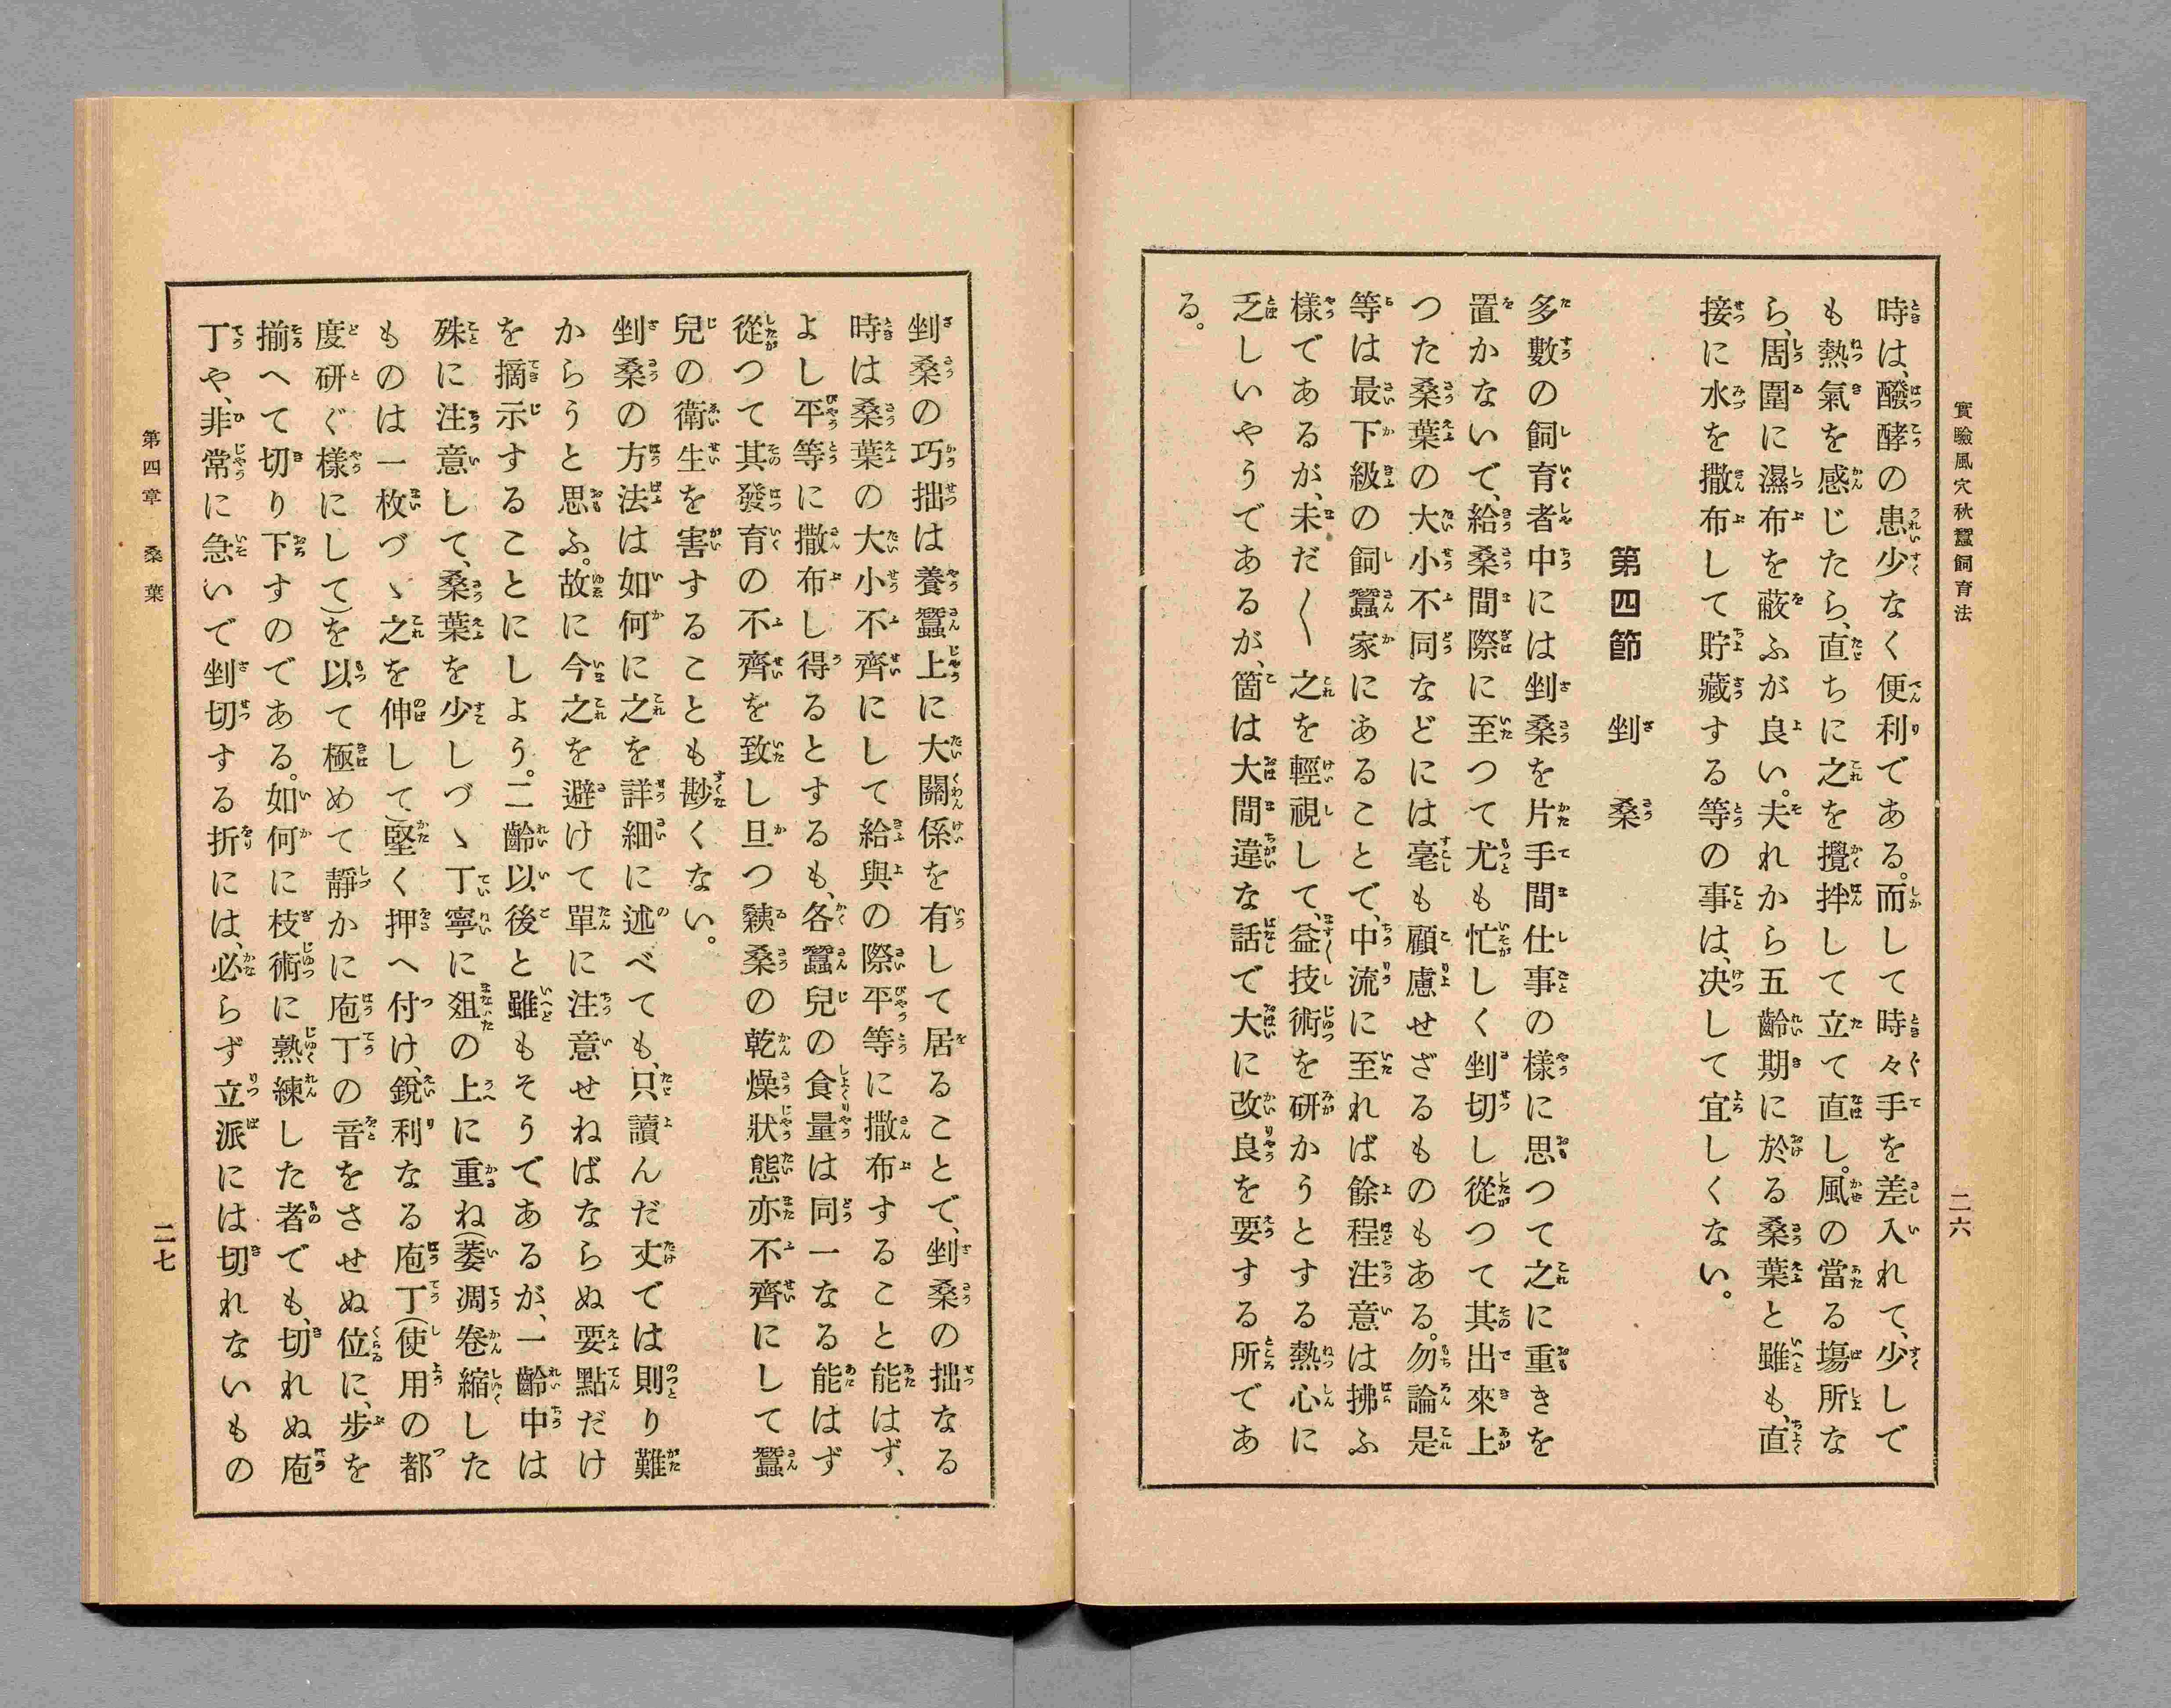 實驗風穴秋蠶飼育法
二六
時は、醱酵の患少なく便利である。而して時々手を差入れて、少しで
も熱氣を感じたら、直ちに之を攪拌して立て直し。風の當る場所な
ら、周圍に濕布を蔽ふが良い。夫れから五齡期に於る桑葉と雖も、直
接に水を撒布して貯藏する等の事は、决して宜しくない。
第四節 剉桑
多數の飼育者中には剉桑を片手間仕事の樣に思つて之に重きを
置かないで、給桑間際に至つて尤も忙しく剉切し從つて其出來上
つた桑葉の大小不同などには毫も顧慮せざるものもある。勿論是
等は最下級の飼蠶家にあることで、中流に至れば餘程注意は拂ふ
樣であるが、未だ〱之を輕視して、益技術を研かうとする熱心に
乏しいやうであるが、箇は大間違な話で大に改良を要する所であ
る。
剉桑の巧拙は養蠶上に大關係を有して居ることで、剉桑の拙なる
時は桑葉の大小不齊にして給與の際平等に撒布すること能はず、
よし平等に撒布し得るとするも、各蠶兒の食量は同一なる能はず
從つて其發育の不齊を致し旦つ桑の乾燥狀態亦不齊にして蠶
兒の衛生を害することも尠くない。
剉桑の方法は如何に之を詳細に述べても、只讀んだ丈では則り難
からうと思ふ。故に今之を避けて單に注意せねばならぬ要點だけ
を摘示することにしよう。二齡以後と雖もそうであるが、一齡中は
殊に注意して、桑葉を少しづゝ丁寧に爼の上に重ね(萎凋卷縮した
ものは一枚づゝ之を伸して)堅く押へ付け、銳利なる庖丁(使用の都
度研ぐ樣にして)を以て極めて靜かに庖丁の音をさせぬ位に、步を
揃へて切り下すのである。如何に枝術に熟練した者でも、切れぬ庖
丁や、非常に急いで剉切する折には、必らず立派には切れないもの
第四章 桑葉
二七